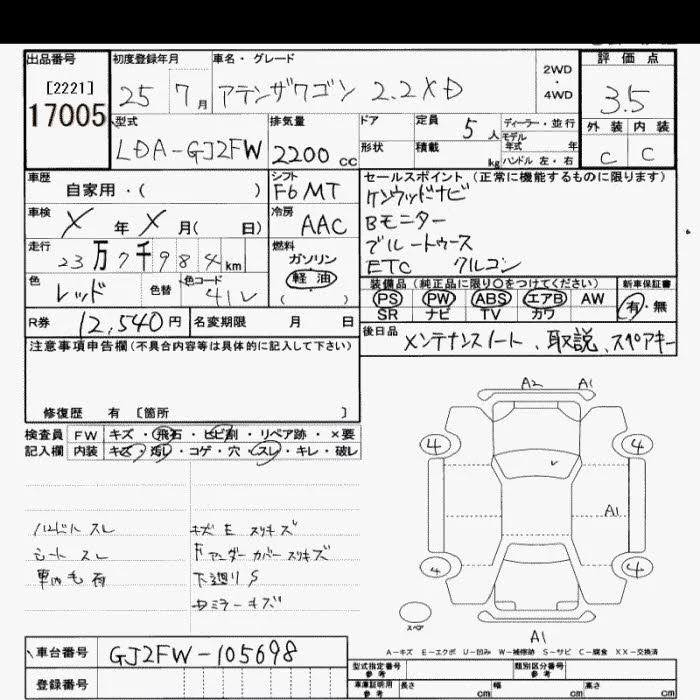 出品番号
[2221]
17005
初度登録年月
25 7月
車名・グレード
アテンザワゴン 2.2XD
2WD
・
4WD
評価点
3.5
外装 内装
C C
型式
LDA-GJ2FW
排気量
2200 cc
ドア
形状
定員 5人
積載 kg
ディーラー・並行
モデル
年式 年
ハンドル 左・右
車歴
自家用・( )
シフト
F6 MT
車検
X 年 X 月( 日)
冷房
AAC
走行
23万7千984km
燃料
ガソリン
軽油
色
レッド
色替
色コード
41V
R券 12,540円
名変期限 月 日
セールスポイント (正常に機能するものに限ります)
ケンウッドナビ
Bモニター
ブルートゥース
ETC クルコン
装備品 (純正品に限り○をつけてください)
PS PW ABS エアB AW
SR ナビ TV カワ
新車保証書
有・無
後日品
メンテナンスノート、取説、スペアキー
注意事項申告欄(不具合内容等は具体的に記入して下さい)
修復歴 有 [箇所 ]
検査員
記入欄
FW キズ・飛石・ヒビ割・リペア跡・×要
内装 キズ・汚れ・コゲ・穴・スレ・キレ・破レ
ハンドル スレ
シート スレ
車内も有
キズ E スリキズ
Fアンダーカバースリキズ
下廻りS
ミラーキズ
A2 A1
4 4
A1
4 4
スペア
A1
A-キズ E-エクボ U-凹み W-補修跡 S-サビ C-腐食 XX-交換済
車台番号 GJ2FW-105698
登録番号
型式指定番号
参考
類別区分番号
参考
車庫証明用
参考
長さ cm 幅 cm 高さ cm